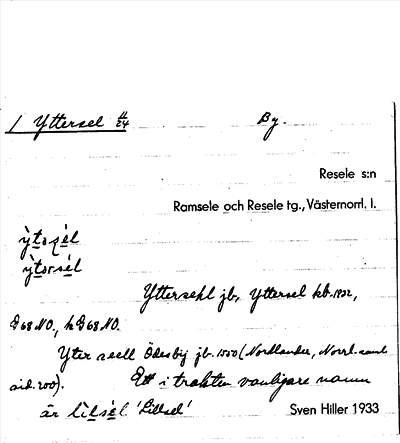 1 Yttersel 11/24 By.
Resele s:n
Ramsele och Resele tg., Västernorrl. l.
ỳtosel
ỳtorsél
Yttersehl jb, Yttersel kb. 1932,
G 68 NO, h G 68 NO.
Yter seell Ödesby jb. 1550 (Nordlander, Norrl. saml.
sid. 200). Ett i trakten vanligare namn
är lìlsél 'Lillsel' Sven Hiller 1933